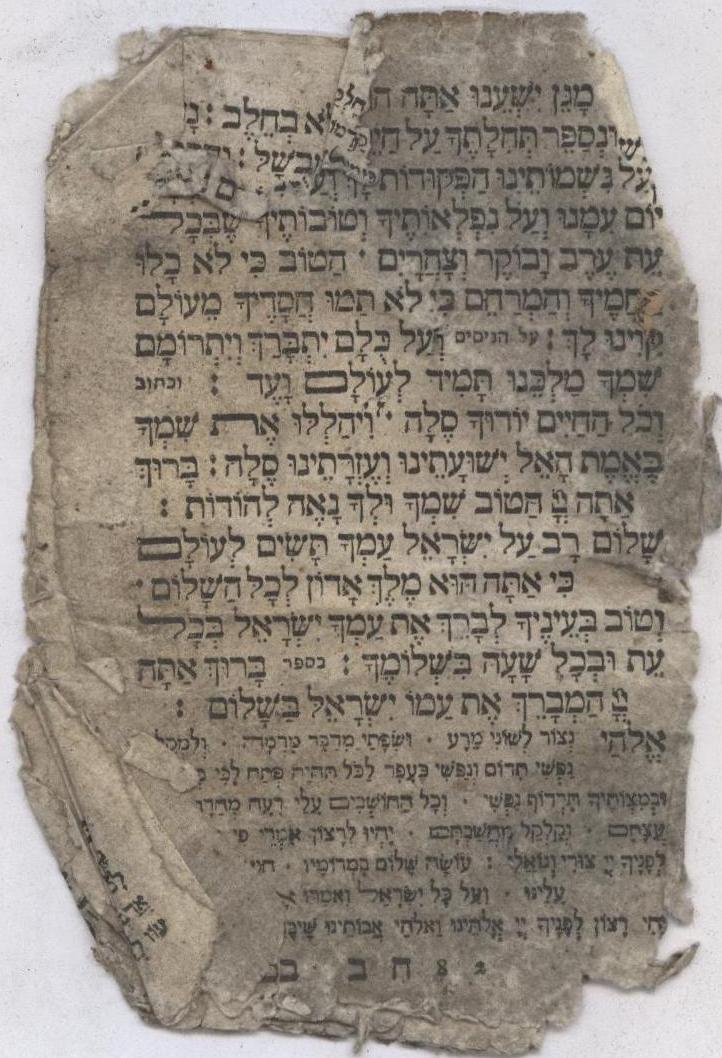 מָגֵן יִשְׁעֵנוּ אַתָּה
וּנְסַפֵּר תְּהִלָּתֶךָ עַל
וְעַל נִשְׁמוֹתֵינוּ הַפְּקוּדוֹת
יוֹם עִמָּנוּ וְעַל נִפְלְאוֹתֶיךָ וְטוֹבוֹתֶיךָ שֶׁבְּכָל
עֵת עֶרֶב וָבוֹקֶר וְצָהֳרָיִם · הַטּוֹב כִּי לֹא כָלוּ
רַחֲמֶיךָ וְהַמְרַחֵם כִּי לֹא תַמּוּ חֲסָדֶיךָ מֵעוֹלָם
קִוִּינוּ לָךְ : על הניסים וְעַל כֻּלָּם יִתְבָּרַךְ וְיִתְרוֹמָם
שִׁמְךָ מַלְכֵּנוּ תָּמִיד לְעוֹלָם וָעֶד : וכתוב
וְכֹל הַחַיִּים יוֹדוּךָ סֶּלָה · וִיהַלְלוּ אֶת שִׁמְךָ
בֶּאֱמֶת הָאֵל יְשׁוּעָתֵינוּ וְעֶזְרָתֵינוּ סֶלָה : בָּרוּךְ
אַתָּה יְיָ הַטּוֹב שִׁמְךָ וּלְךָ נָאֶה לְהוֹדוֹת :
שָׁלוֹם רָב עַל יִשְׂרָאֵל עַמְּךָ תָּשִׂים לְעוֹלָם
כִּי אַתָּה הוּא מֶלֶךְ אָדוֹן לְכָל הַשָּׁלוֹם ·
וְטוֹב בְּעֵינֶיךָ לְבָרֵךְ אֶת עַמְּךָ יִשְׂרָאֵל בְּכָל
עֵת וּבְכָל שָׁעָה בִּשְׁלוֹמֶךָ : בספר בָּרוּךְ אַתָּה
יְיָ הַמְבָרֵךְ אֶת עַמּוֹ יִשְׂרָאֵל בַּשָּׁלוֹם :
אֱלֹהַי נְצוֹר לְשׁוֹנִי מֵרָע · וּשְׂפָתַי מִדַּבֵּר מִרְמָה ·
נַפְשִׁי תִדּוֹם וְנַפְשִׁי כֶּעָפָר לַכֹּל תִּהְיֶה פְּתַח לִבִּי
וּבְמִצְוֹתֶיךָ תִּרְדּוֹף נַפְשִׁי · וְכָל הַחוֹשְׁבִים עָלַי רָעָה
עֲצָתָם · וְקַלְקֵל מַחְשְׁבֹתָם · יִהְיוּ לְרָצוֹן אִמְרֵי פִי
לְפָנֶיךָ יְיָ צוּרִי וְגוֹאֲלִי : עוֹשֶׂה שָׁלוֹם בִּמְרוֹמָיו ·
עָלֵינוּ · וְעַל כָּל יִשְׂרָאֵל וְאִמְרוּ
יְהִי רָצוֹן לְפָנֶיךָ יְיָ אֱלֹהֵינוּ וֵאלֹהֵי אֲבוֹתֵינוּ
ח ב